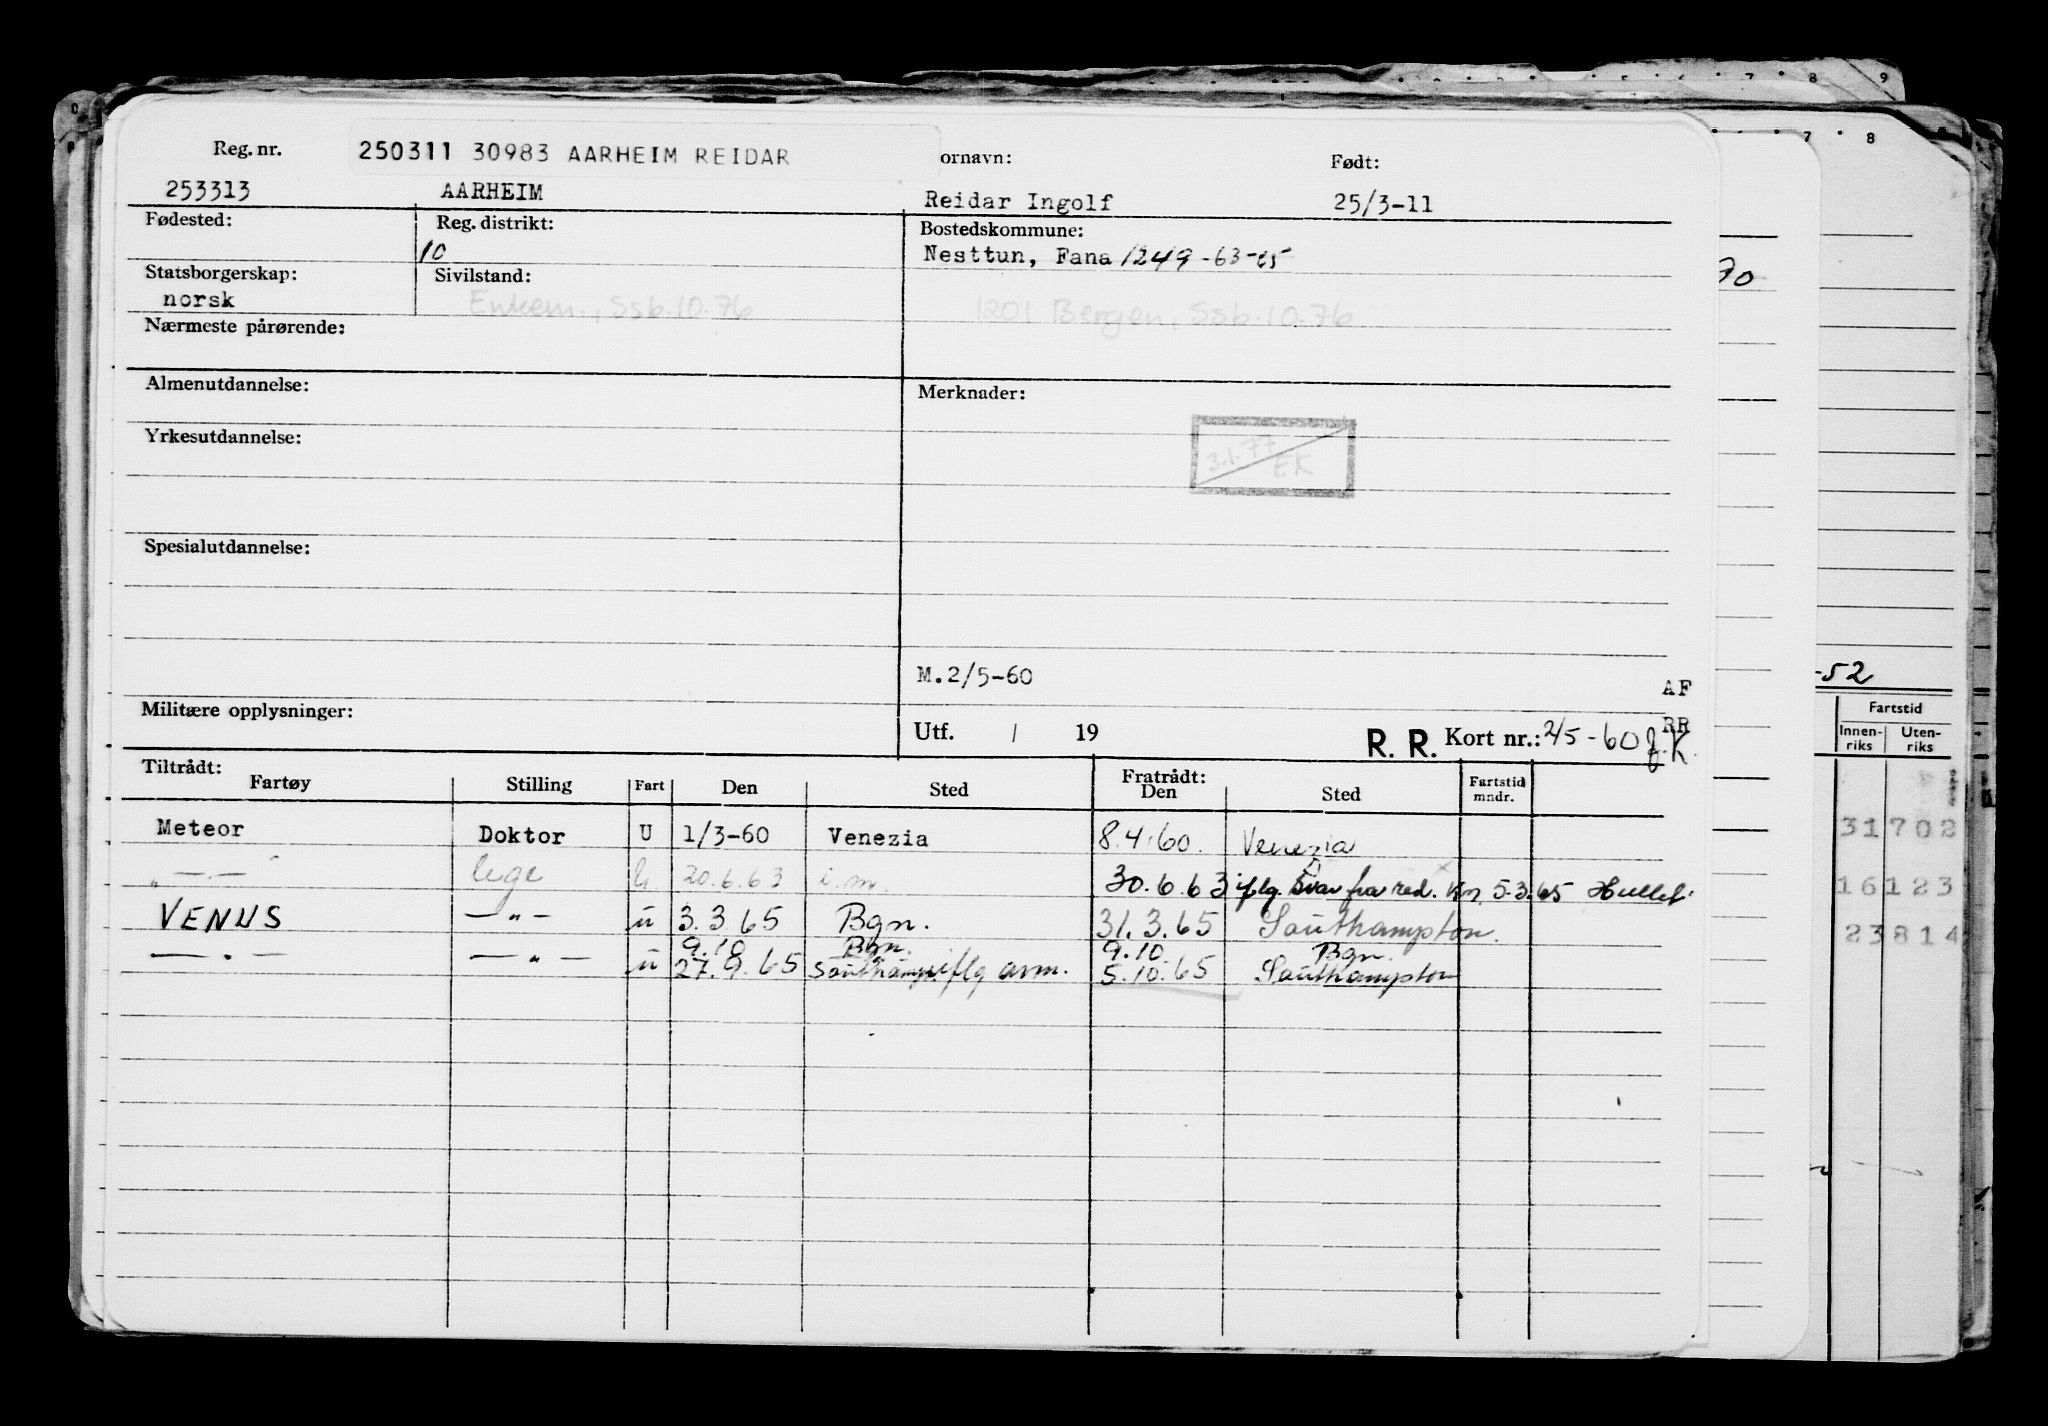 Reg. nr. 250311 30983 AARHEIM REIDAR ornavn: Født:
253313 AARHEIM Reidar Ingolf 25/3-11
Fødested: Reg. distrikt: Bostedskommune:
10 Nesttun, Fana 1249-63-65
Statsborgerskap: Sivilstand:
norsk Enkem., Ssb.10.76 1201 Bergen, Ssb.10.76
Nærmeste pårørende:
Almenutdannelse: Merknader:
Yrkesutdannelse:
3.1.77 EK
Spesialutdannelse:
M.2/5-60 AF
Militære opplysninger:
Utf. / 19 R. R. Kort nr.: 2/5-60 RR
Tiltrådt: Fratrådt:
Fartøy Stilling Fart Den Sted Den Sted Fartstid mndr.
Meteor Doktor U 1/3-60 Venezia 8.4.60. Venezia
" — . — lege 20.6.63 i.m. 30.6.63 iflg. Svar fra red. 5.3.65
VENUS — " — u 3.3.65 Bgn. 31.3.65 Southampton.
9.10 Bgn. 9.10. Bgn.
— " — — " — u 27.9.65 Southamp. iflg anm. 5.10.65 Southampton
70
-52
Fartstid
Innen-riks Uten-riks
31702
16123
23814
7 8 9
7 8